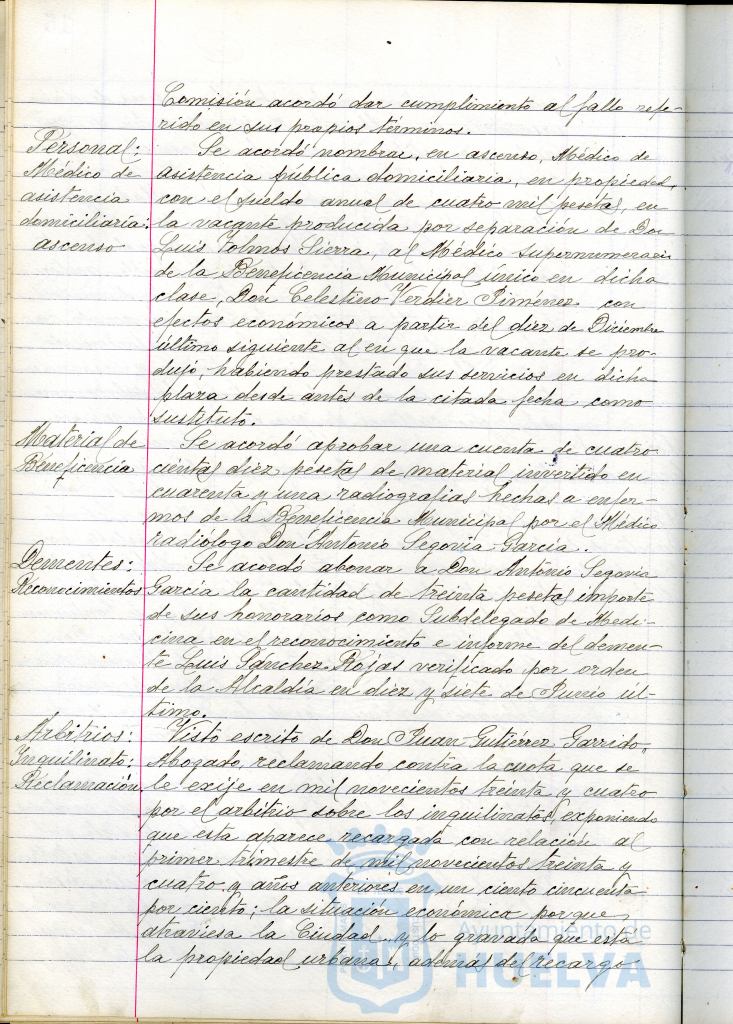 Comisión acordó dar cumplimiento al fallo refe-
rido en sus propios términos.
Personal:
Médico de
asistencia
domiciliaria:
ascenso
Se acordó nombrar, en ascenso, Médico de
asistencia pública domiciliaria, en propiedad,
con el sueldo anual de cuatro mil pesetas, en
la vacante producida por separación de Don
Luis Tolmos Sierra, al Médico supernumerario
de la Beneficencia Municipal único en dicha
clase, Don Celestino Verdier Jiménez con
efectos económicos a partir del diez de Diciembre
último siguiente al en que la vacante se pro-
dujo, habiendo prestado sus servicios en dicha
plaza desde antes de la citada fecha como
sustituto.
Material de
Beneficencia
Se acordó aprobar una cuenta de cuatro
cientas diez pesetas de material invertido en
cuarenta y una radiografías hechas a enfer-
mos de la Beneficencia Municipal por el Médico
radiólogo Don Antonio Segovia García.
Dementes:
Reconocimientos
Se acordó abonar a Don Antonio Segovia
García la cantidad de treinta pesetas importe
de sus honorarios como Subdelegado de Medi-
cina en el reconocimiento e informe del demen-
te Luis Sánchez Rojas verificado por orden
de la Alcaldía en diez y siete de Junio úl-
timo.
Arbitrios:
Inquilinato:
Reclamación
Visto escrito de Don Juan Gutiérrez Garrido,
Abogado, reclamando contra la cuota que se
le exije en mil novecientos treinta y cuatro
por el arbitrio sobre los inquilinatos, exponiendo
que esta aparece recargada con relación al
primer trimestre de mil novecientos treinta y
cuatro y años anteriores en un ciento cincuenta
por ciento; la situación económica porque
atraviesa la Ciudad y lo gravada que está
la propiedad urbana, además del recargo
Ayuntamiento de
HUELVA